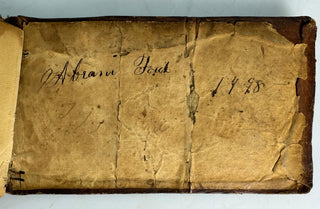 Abram Ford 1928